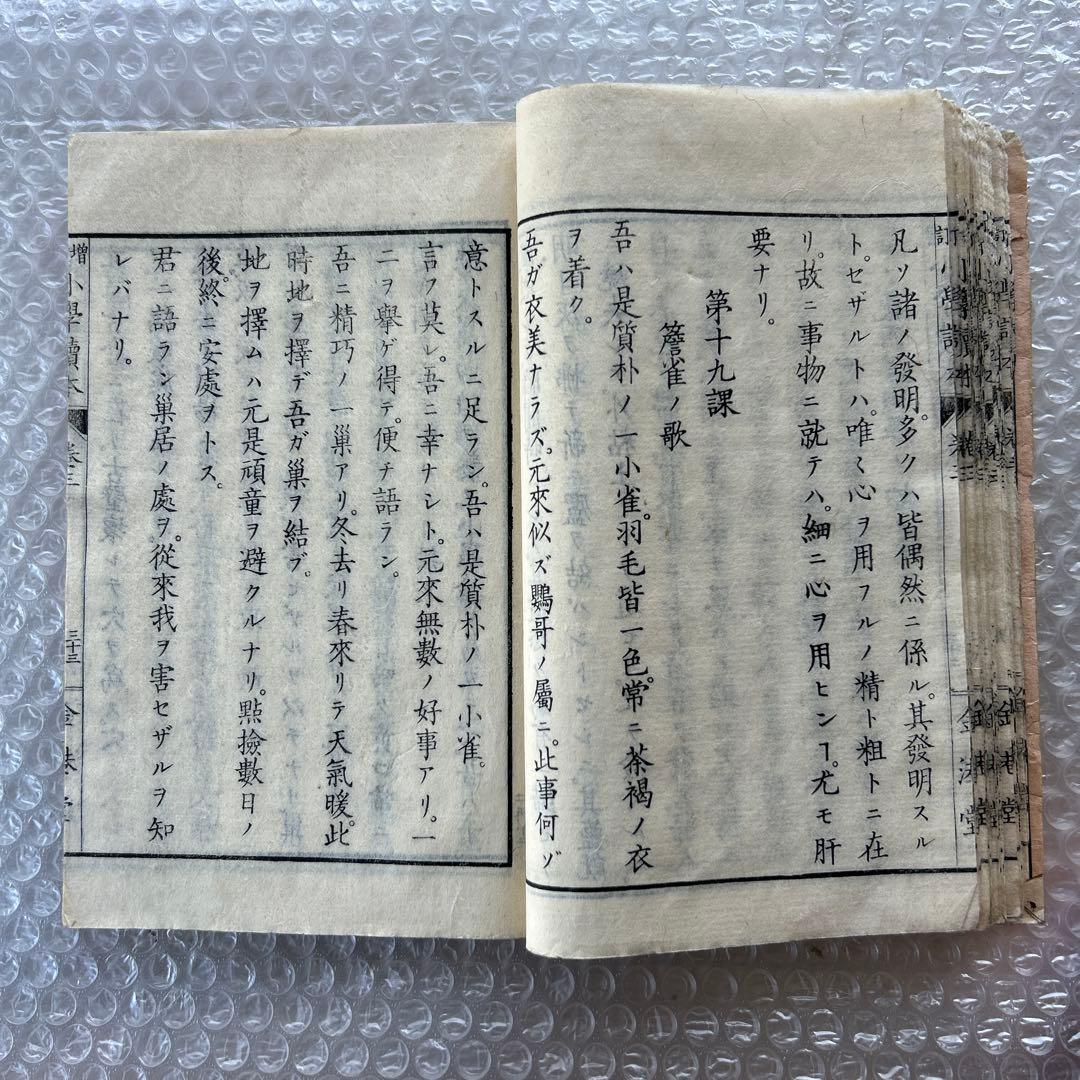 凡ソ諸ノ發明。多クハ皆偶然ニ係ル。其發明スル
ト。セザルトハ。唯〻心ヲ用フルノ精ト粗トニ在
リ。故ニ事物ニ就テハ。細ニ心ヲ用ヒンヿ。尤モ肝
要ナリ。
第十九課
簷雀ノ歌
吾ハ是質朴ノ一小雀。羽毛皆一色。常ニ茶褐ノ衣
ヲ着ク。
吾ガ衣美ナラズ。元來似ズ鸚哥ノ屬ニ。此事何ゾ
意トスルニ足ラン。吾ハ是質朴ノ一小雀。
言フ莫レ。吾ニ幸ナシト。元來無數ノ好事アリ。一
二ヲ擧ゲ得テ。便チ語ラン。
吾ニ精巧ノ一巢アリ。冬去リ春來リテ天氣暖。此
時地ヲ擇デ吾ガ巢ヲ結ブ。
地ヲ擇ムハ元是頑童ヲ避クルナリ。點撿數日ノ
後。終ニ安處ヲトス。
君ニ語ラン巢居ノ處ヲ。從來我ヲ害セザルヲ知
レバナリ。
增 小學讀本 卷三 三十三 金港堂